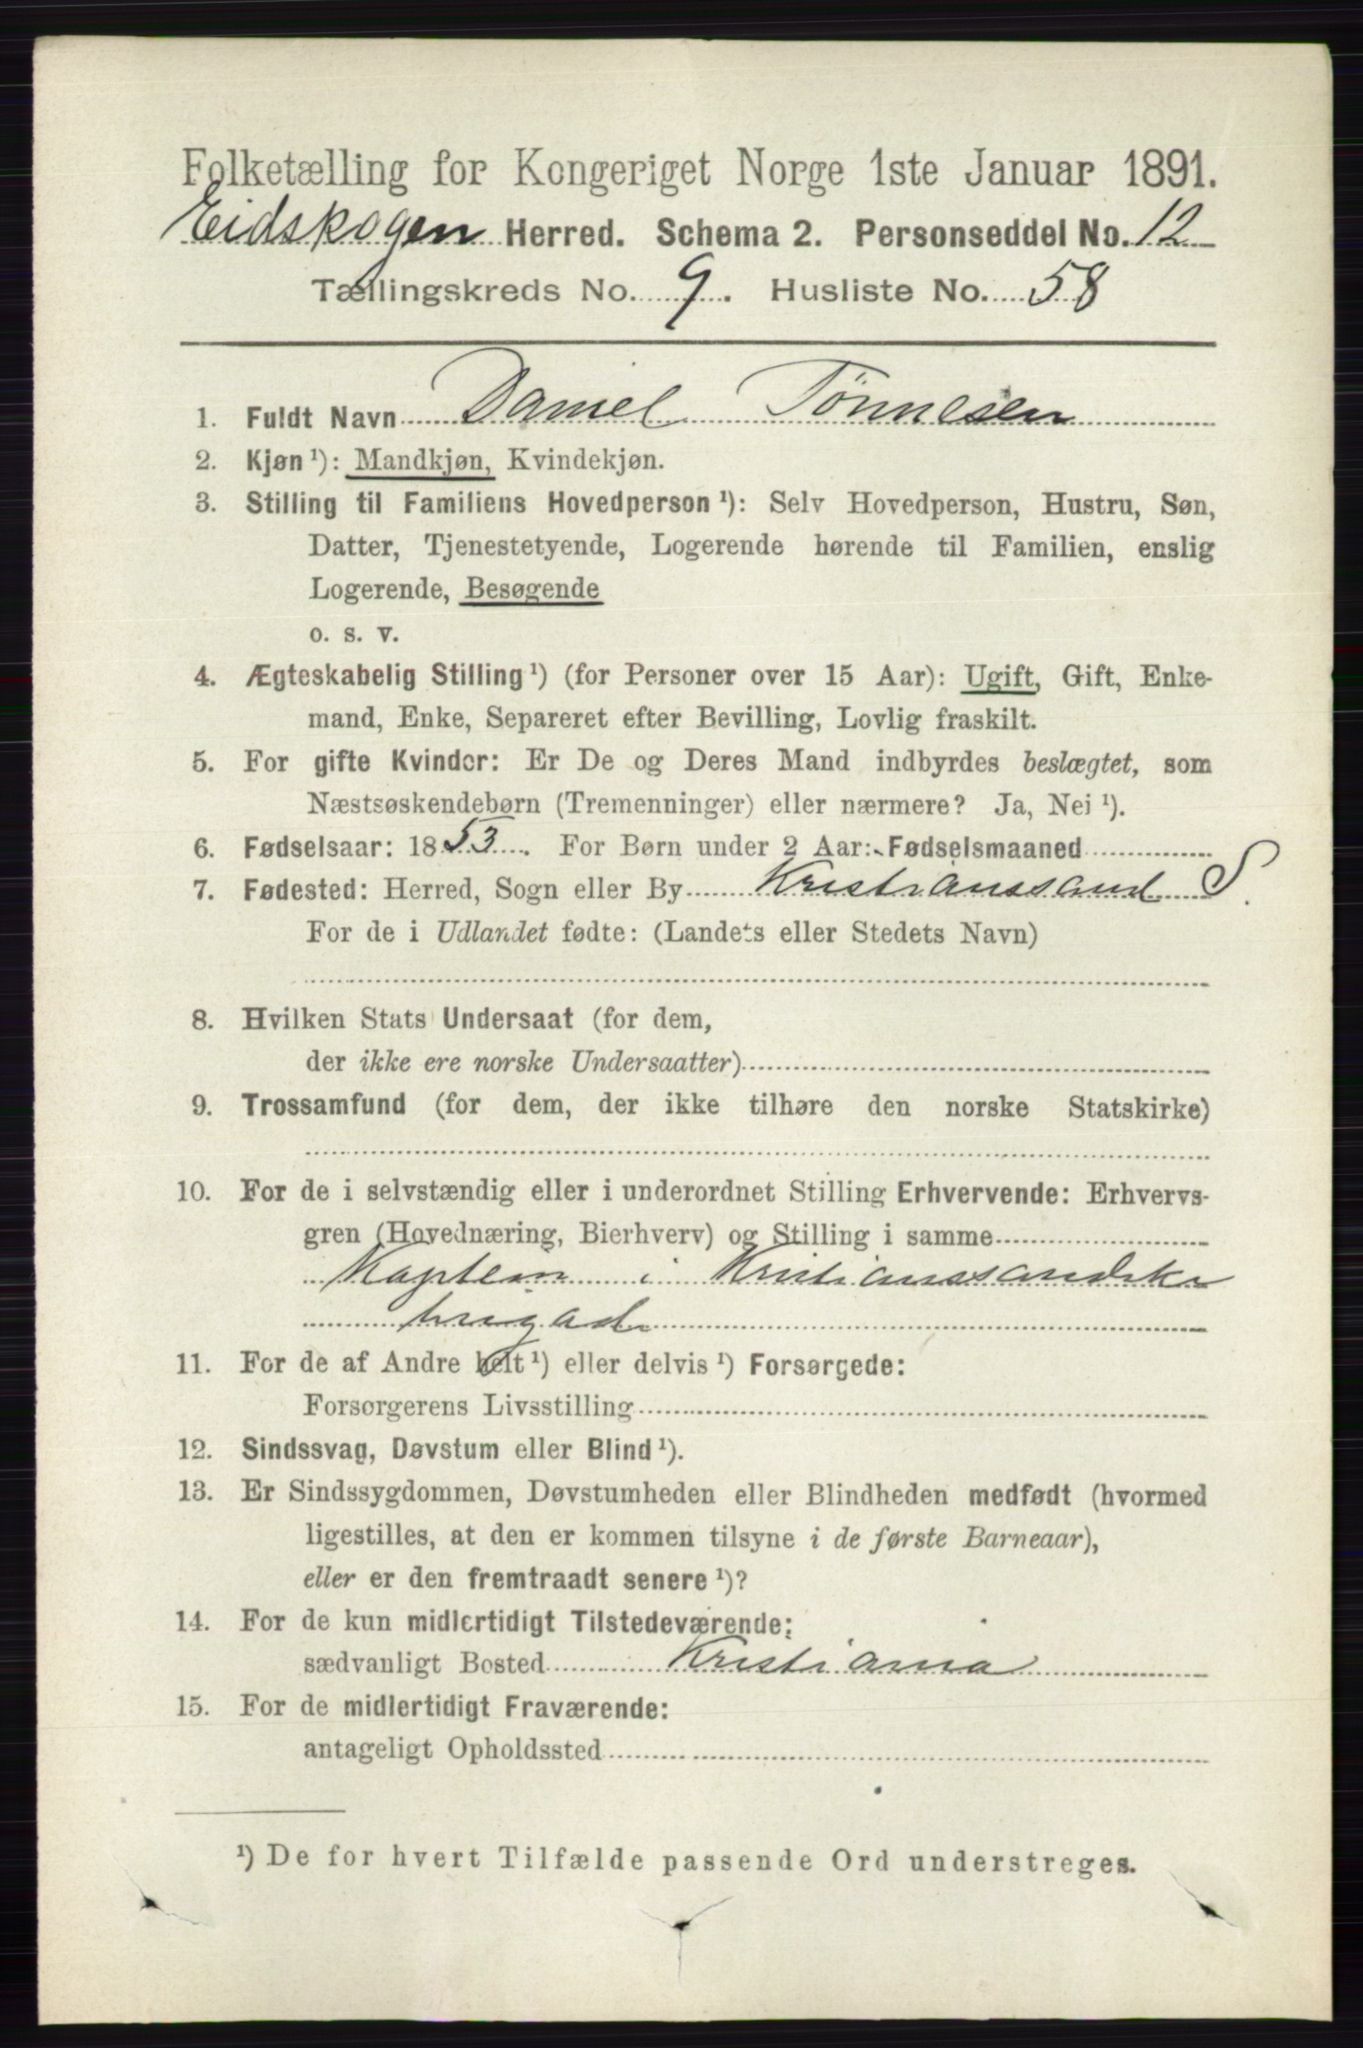 Folketælling for Kongeriget Norge 1ste Januar 1891.
Eidskogen Herred. Schema 2. Personseddel No. 12
Tællingskreds No. 9. Husliste No. 58
1. Fuldt Navn Daniel Tönnesen
2. Kjøn ¹): Mandkjøn, Kvindekjøn.
3. Stilling til Familiens Hovedperson ¹): Selv Hovedperson, Hustru, Søn,
Datter, Tjenestetyende, Logerende hørende til Familien, enslig
Logerende, Besøgende
o. s. v.
4. Ægteskabelig Stilling ¹) (for Personer over 15 Aar): Ugift, Gift, Enke-
mand, Enke, Separeret efter Bevilling, Lovlig fraskilt.
5. For gifte Kvinder: Er De og Deres Mand indbyrdes beslægtet, som
Næstsøskendebørn (Tremenninger) eller nærmere? Ja, Nei ¹).
6. Fødselsaar: 1853. For Børn under 2 Aar: Fødselsmaaned
7. Fødested: Herred, Sogn eller By Kristianssand S.
For de i Udlandet fødte: (Landets eller Stedets Navn)
8. Hvilken Stats Undersaat (for dem,
der ikke ere norske Undersaatter)
9. Trossamfund (for dem, der ikke tilhøre den norske Statskirke)
10. For de i selvstændig eller i underordnet Stilling Erhvervende: Erhvervs-
gren (Hovednæring, Bierhverv) og Stilling i samme
Kaptein i Kristianssandske
brigade
11. For de af Andre helt ¹) eller delvis ¹) Forsørgede:
Forsørgerens Livsstilling
12. Sindssvag, Døvstum eller Blind ¹).
13. Er Sindssygdommen, Døvstumheden eller Blindheden medfødt (hvormed
ligestilles, at den er kommen tilsyne i de første Barneaar),
eller er den fremtraadt senere ¹)?
14. For de kun midlertidigt Tilstedeværende:
sædvanligt Bosted Kristiania
15. For de midlertidigt Fraværende:
antageligt Opholdssted
¹) De for hvert Tilfælde passende Ord understreges.